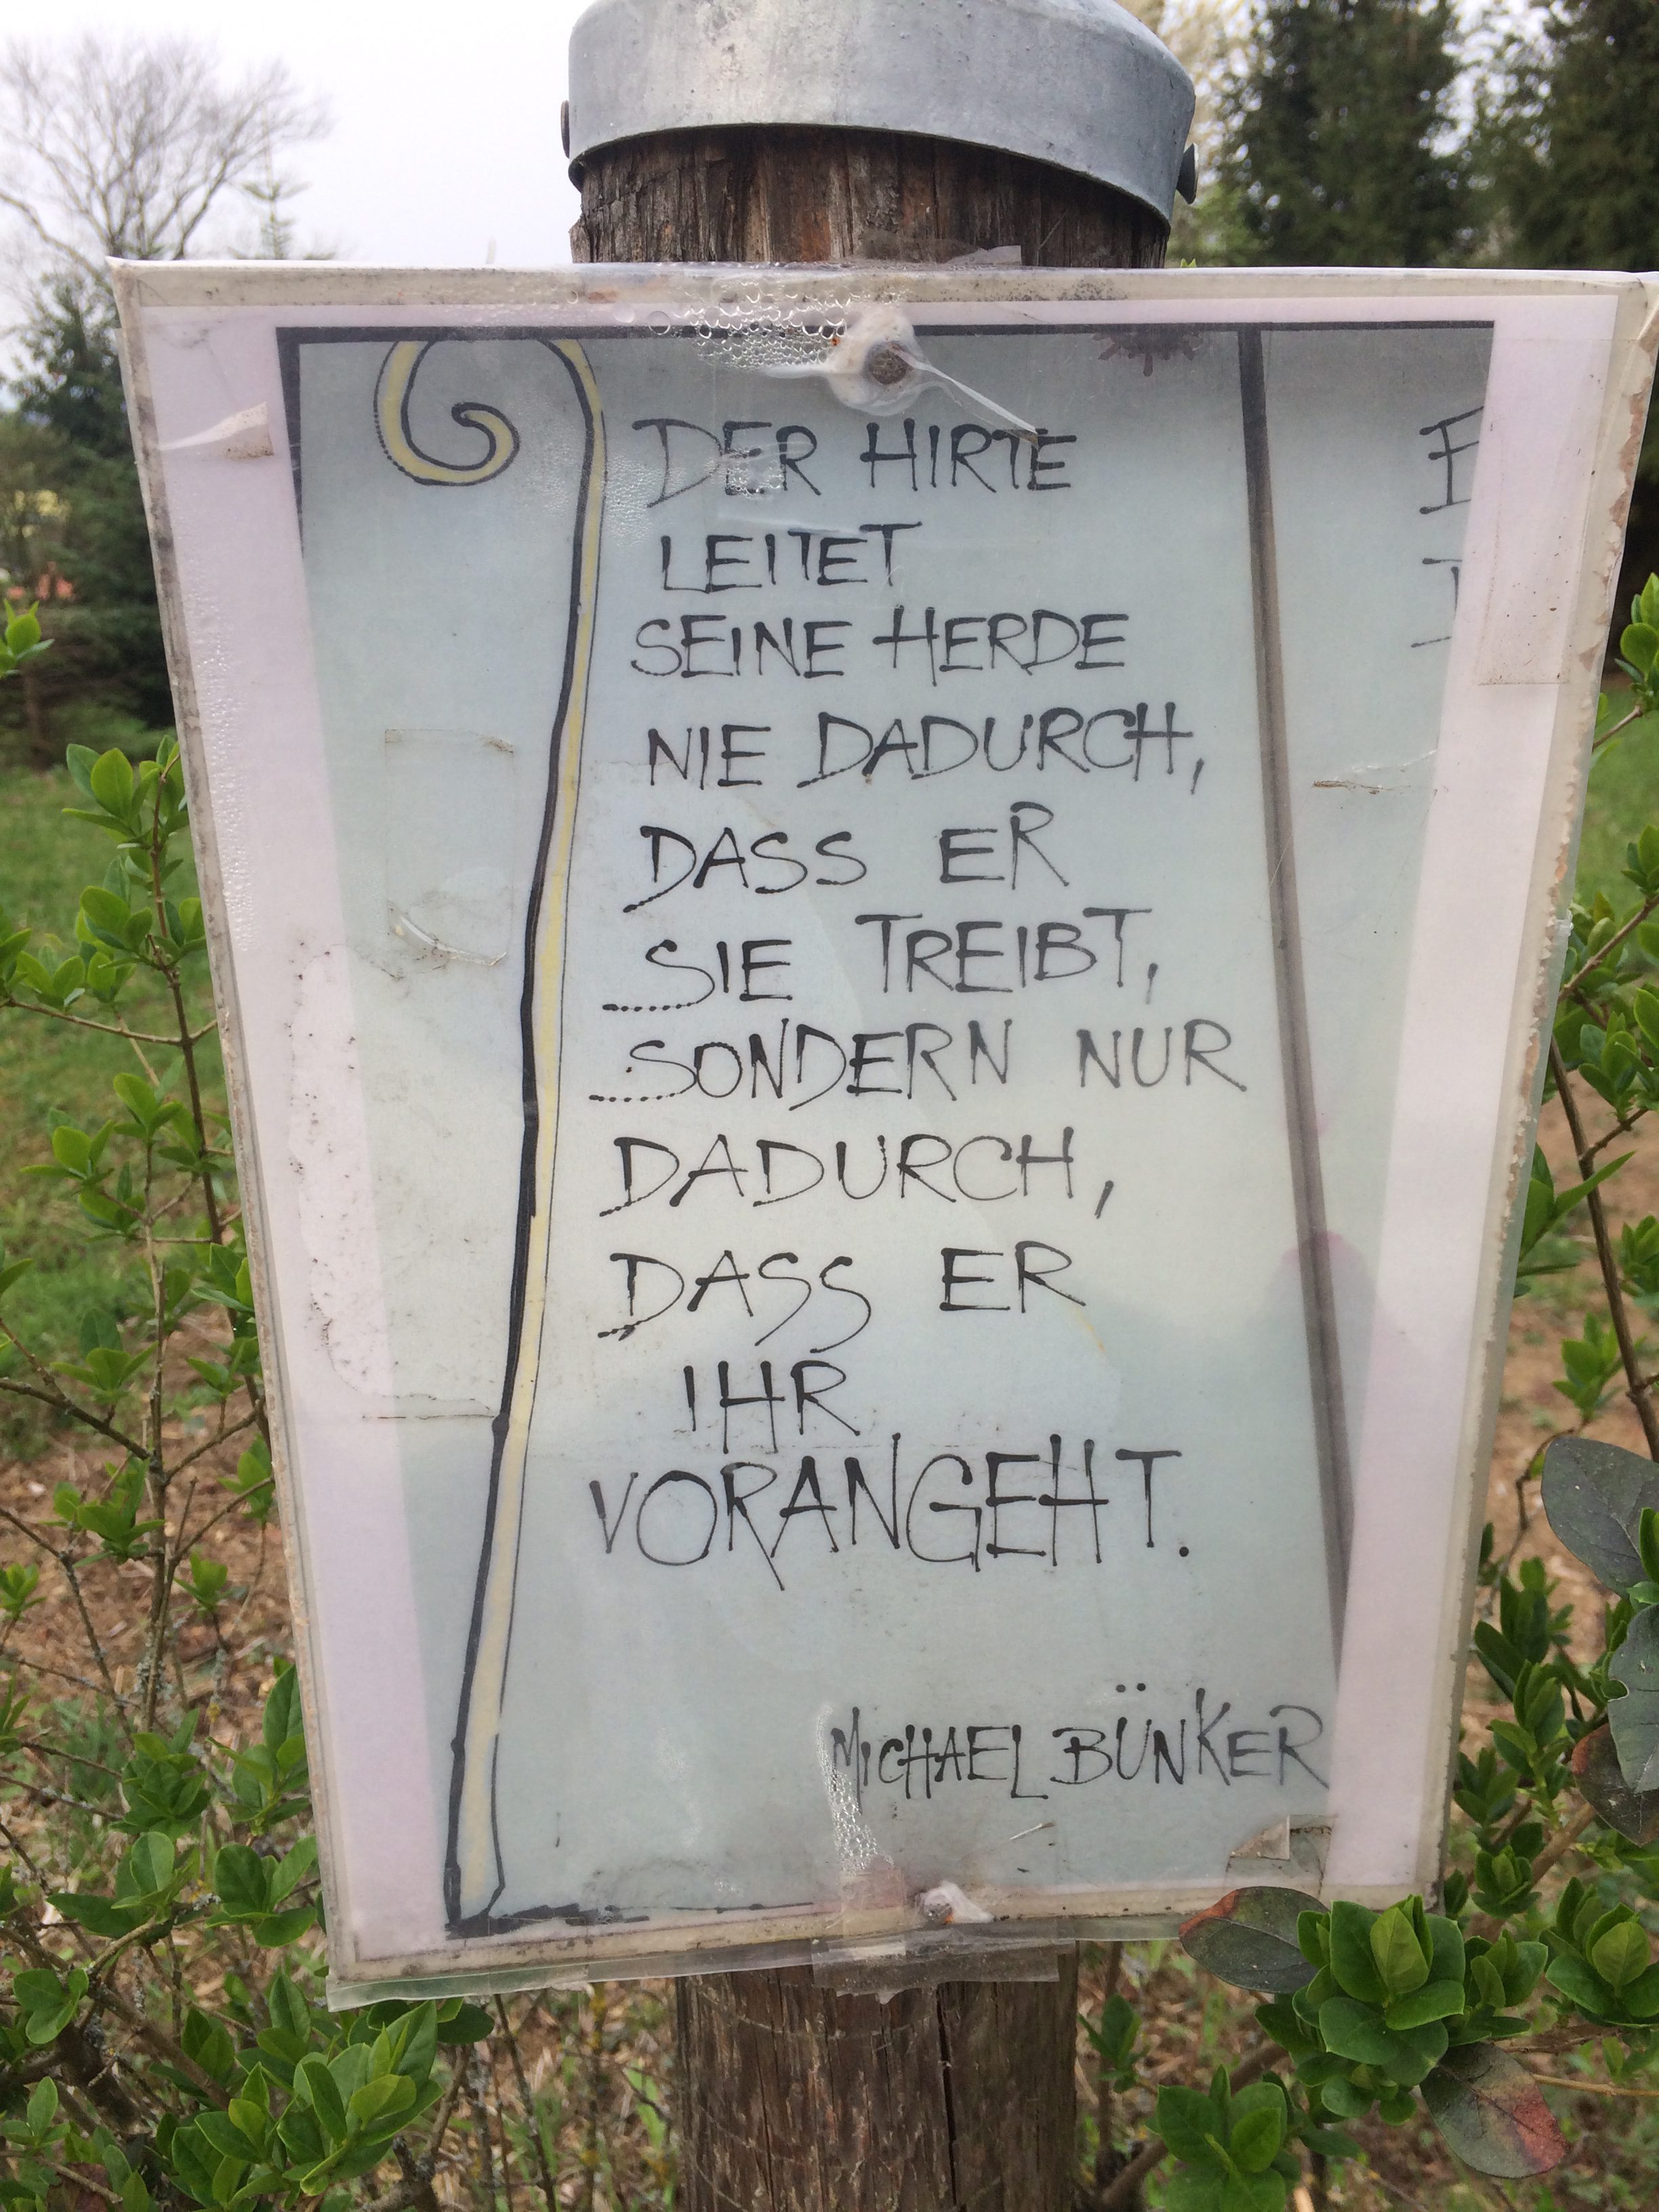 DER HIRTE
LEITET
SEINE HERDE
NIE DADURCH,
DASS ER
SIE TREIBT,
SONDERN NUR
DADURCH,
DASS ER
IHR
VORANGEHT.
MICHAEL BÜNKER